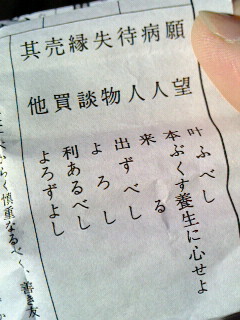 願望 叶ふべし
病人 本ぶくす養生に心せよ
待人 来る
失物 出ずべし
縁談 よろし
売買 利あるべし
其他 よろずよし
らく慎重なるべく、善き友